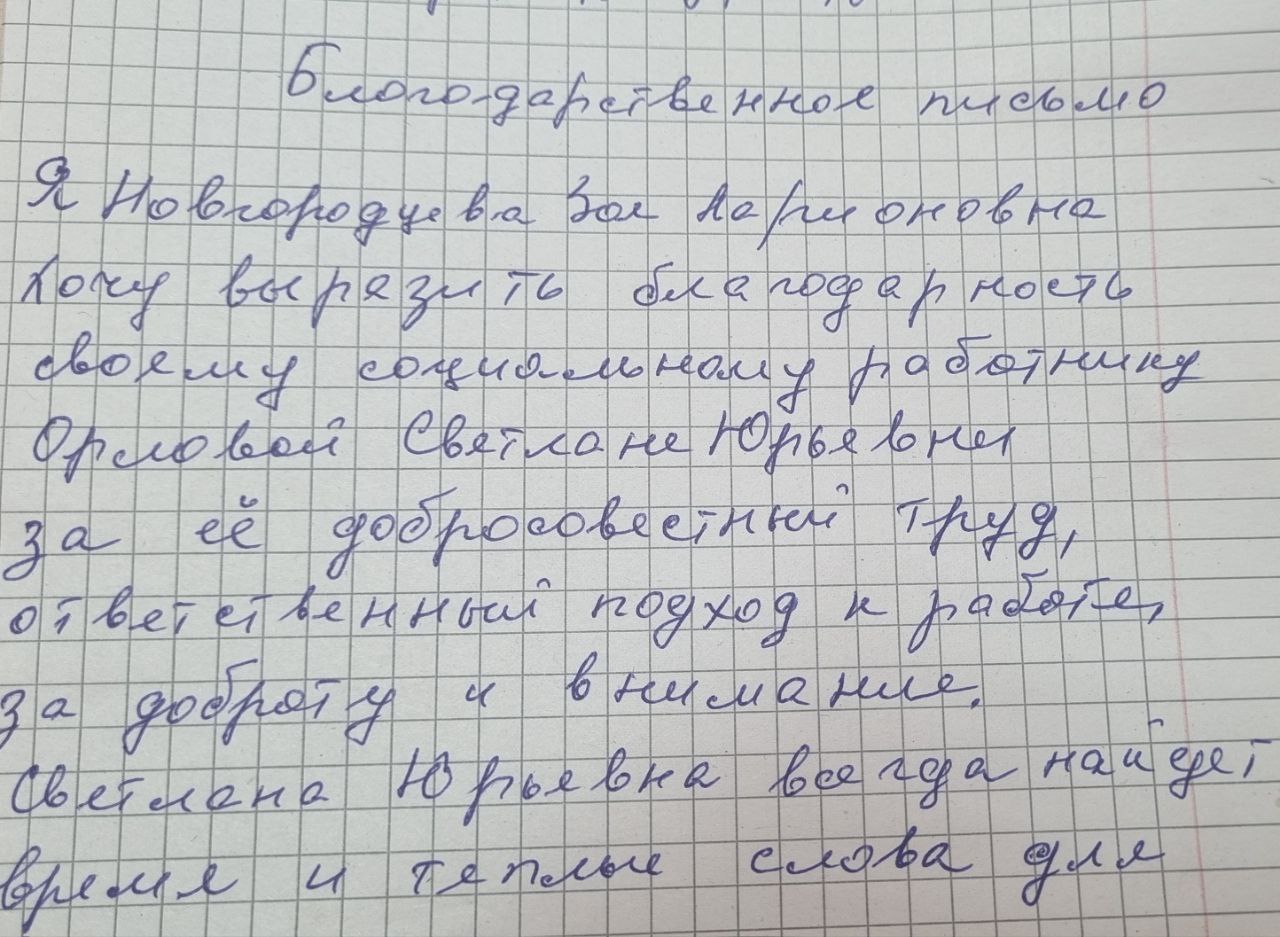 Благодарственное письмо
Я Новгородцева Зоя Ларионовна
Хочу выразить благодарность
своему социальному работнику
Орловой Светлане Юрьевне
за её добросовестный труд,
ответственный подход к работе,
за доброту и внимание.
Светлана Юрьевна всегда найдет
время и теплые слова для